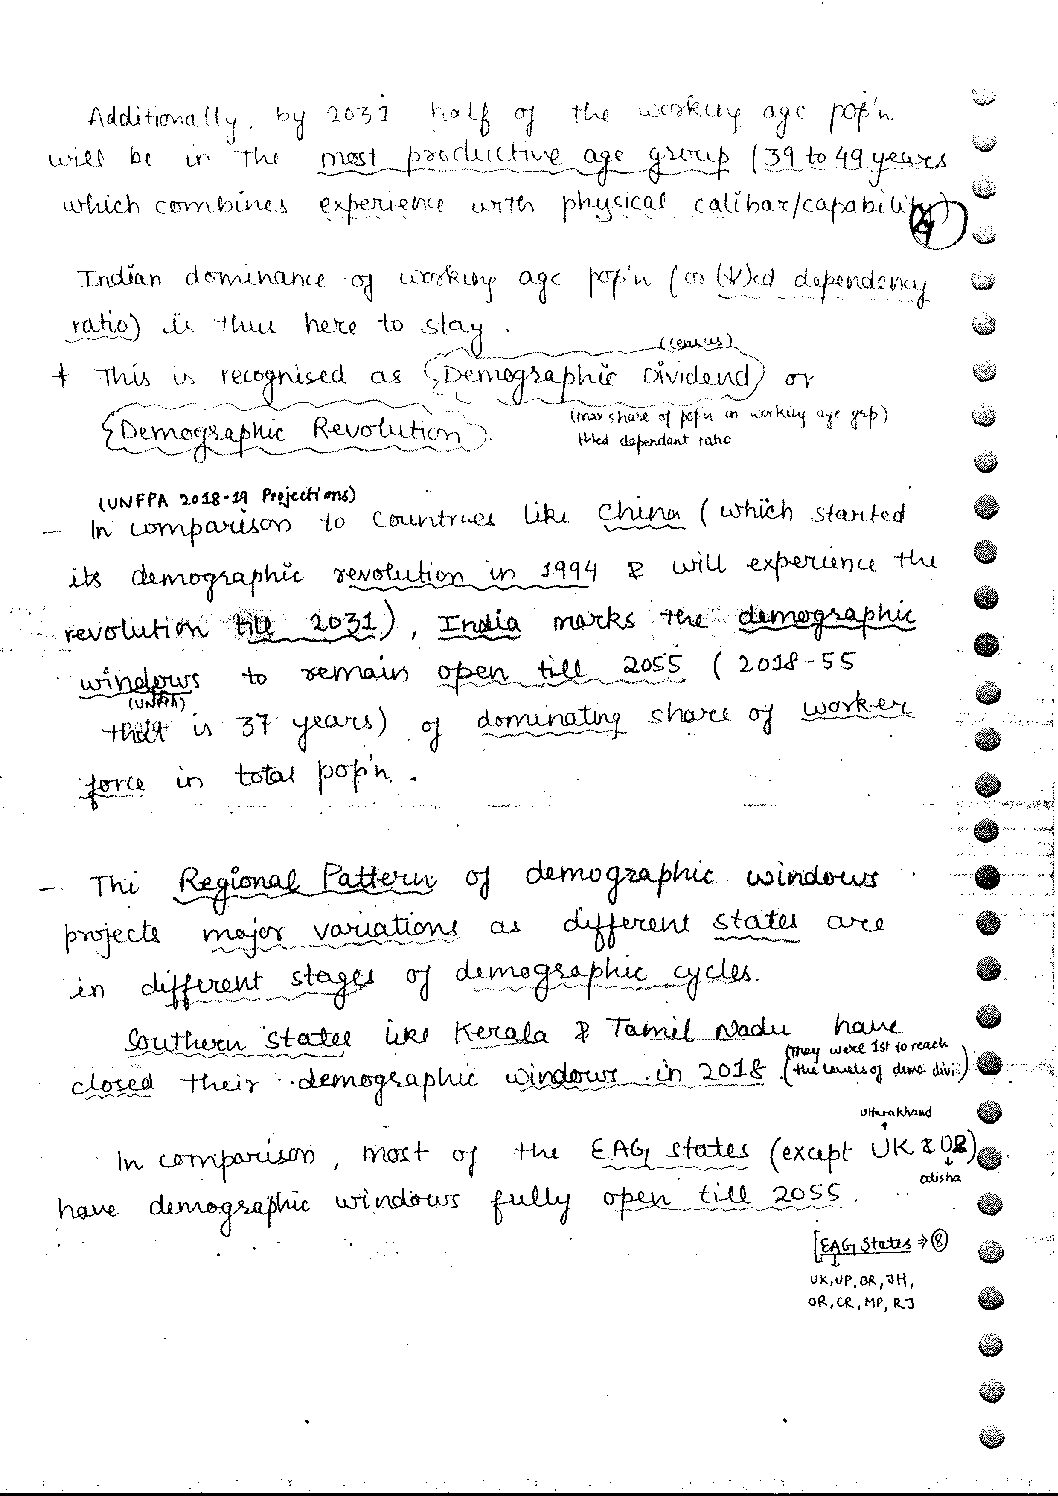 Additionally, by 2031 half of the working age pop'n
will be in the most productive age group (39 to 49 years
which combines experience with physical calibar/capability)
Indian dominance of working age pop'n (or (↓)ed dependency
ratio) is thus here to stay.
(census)
* This is recognised as {Demographic Dividend} or
(max share of pop'n in working age grp)
{Demographic Revolution}.
dependant ratio
(UNFPA 2018-19 Projections)
- In comparison to countries like China (which started
its demographic revolution in 1994 & will experience the
revolution till 2031), India marks the demographic
windows to remain open till 2055 (2018-55
(UNFPA)
that is 37 years) of dominating share of worker
force in total pop'n.
- The Regional Pattern of demographic windows
projects major variations as different states are
in different stages of demographic cycles.
Southern states like Kerala & Tamil Nadu have
(They were 1st to reach
closed their demographic windows in 2018 the levels of demo divi.)
Uttarakhand
↑
In comparison, most of the EAG states (except UK & OR)
↓
odisha
have demographic windows fully open till 2055.
[EAG States → 8
↓
UK, UP, BR, JH,
OR, CR, MP, RJ